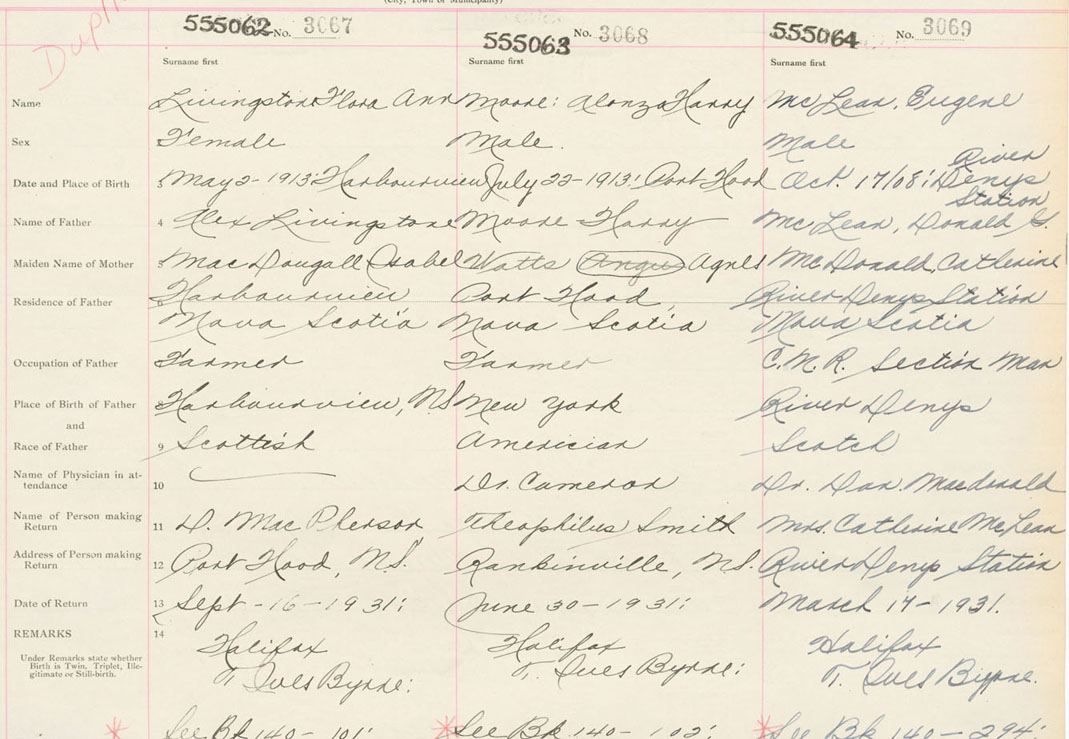 (City, Town or Municipality)
Dupli
555062 No. 3067
555063 No. 3068
555064 No. 3069
Surname first Surname first Surname first
Name Livingstone Flora Ann Moore: Alonzo Harry McLean, Eugene
Sex Female Male. Male
Date and Place of Birth 3 May 2-1913: Harbourview July 22-1913: Port Hood Oct. 17/08: River Denys Station
Name of Father 4 Alex Livingstone Moore Harry McLean, Donald G.
Maiden Name of Mother 5 MacDougall Isabel Watts Angus Agnes McDonald, Catherine
Residence of Father Harbourview Port Hood, River Denys Station
Nova Scotia Nova Scotia Nova Scotia
Occupation of Father Farmer Farmer C.N.R. Section Man
Place of Birth of Father Harbourview, NS New York River Denys
and
Race of Father 9 Scottish Americian Scotch
Name of Physician in at-
tendance 10 Dr. Cameron Dr. Dan. Macdonald
Name of Person making
Return 11 D. MacPherson Theophilus Smith Mrs. Catherine McLean
Address of Person making
Return 12 Port Hood, N.S. Rankinville, N.S. River Denys Station
Date of Return 13 Sept-16-1931: June 30-1931: March 14-1931.
REMARKS 14 Halifax Halifax Halifax
Under Remarks state whether
Birth is Twin, Triplet, Ille-
gitimate or Still-birth.
T. Ives Byrne: T. Ives Byrne: T. Ives Byrne.
See Bk 140-101: See Bk 140-102: See Bk 140-294: